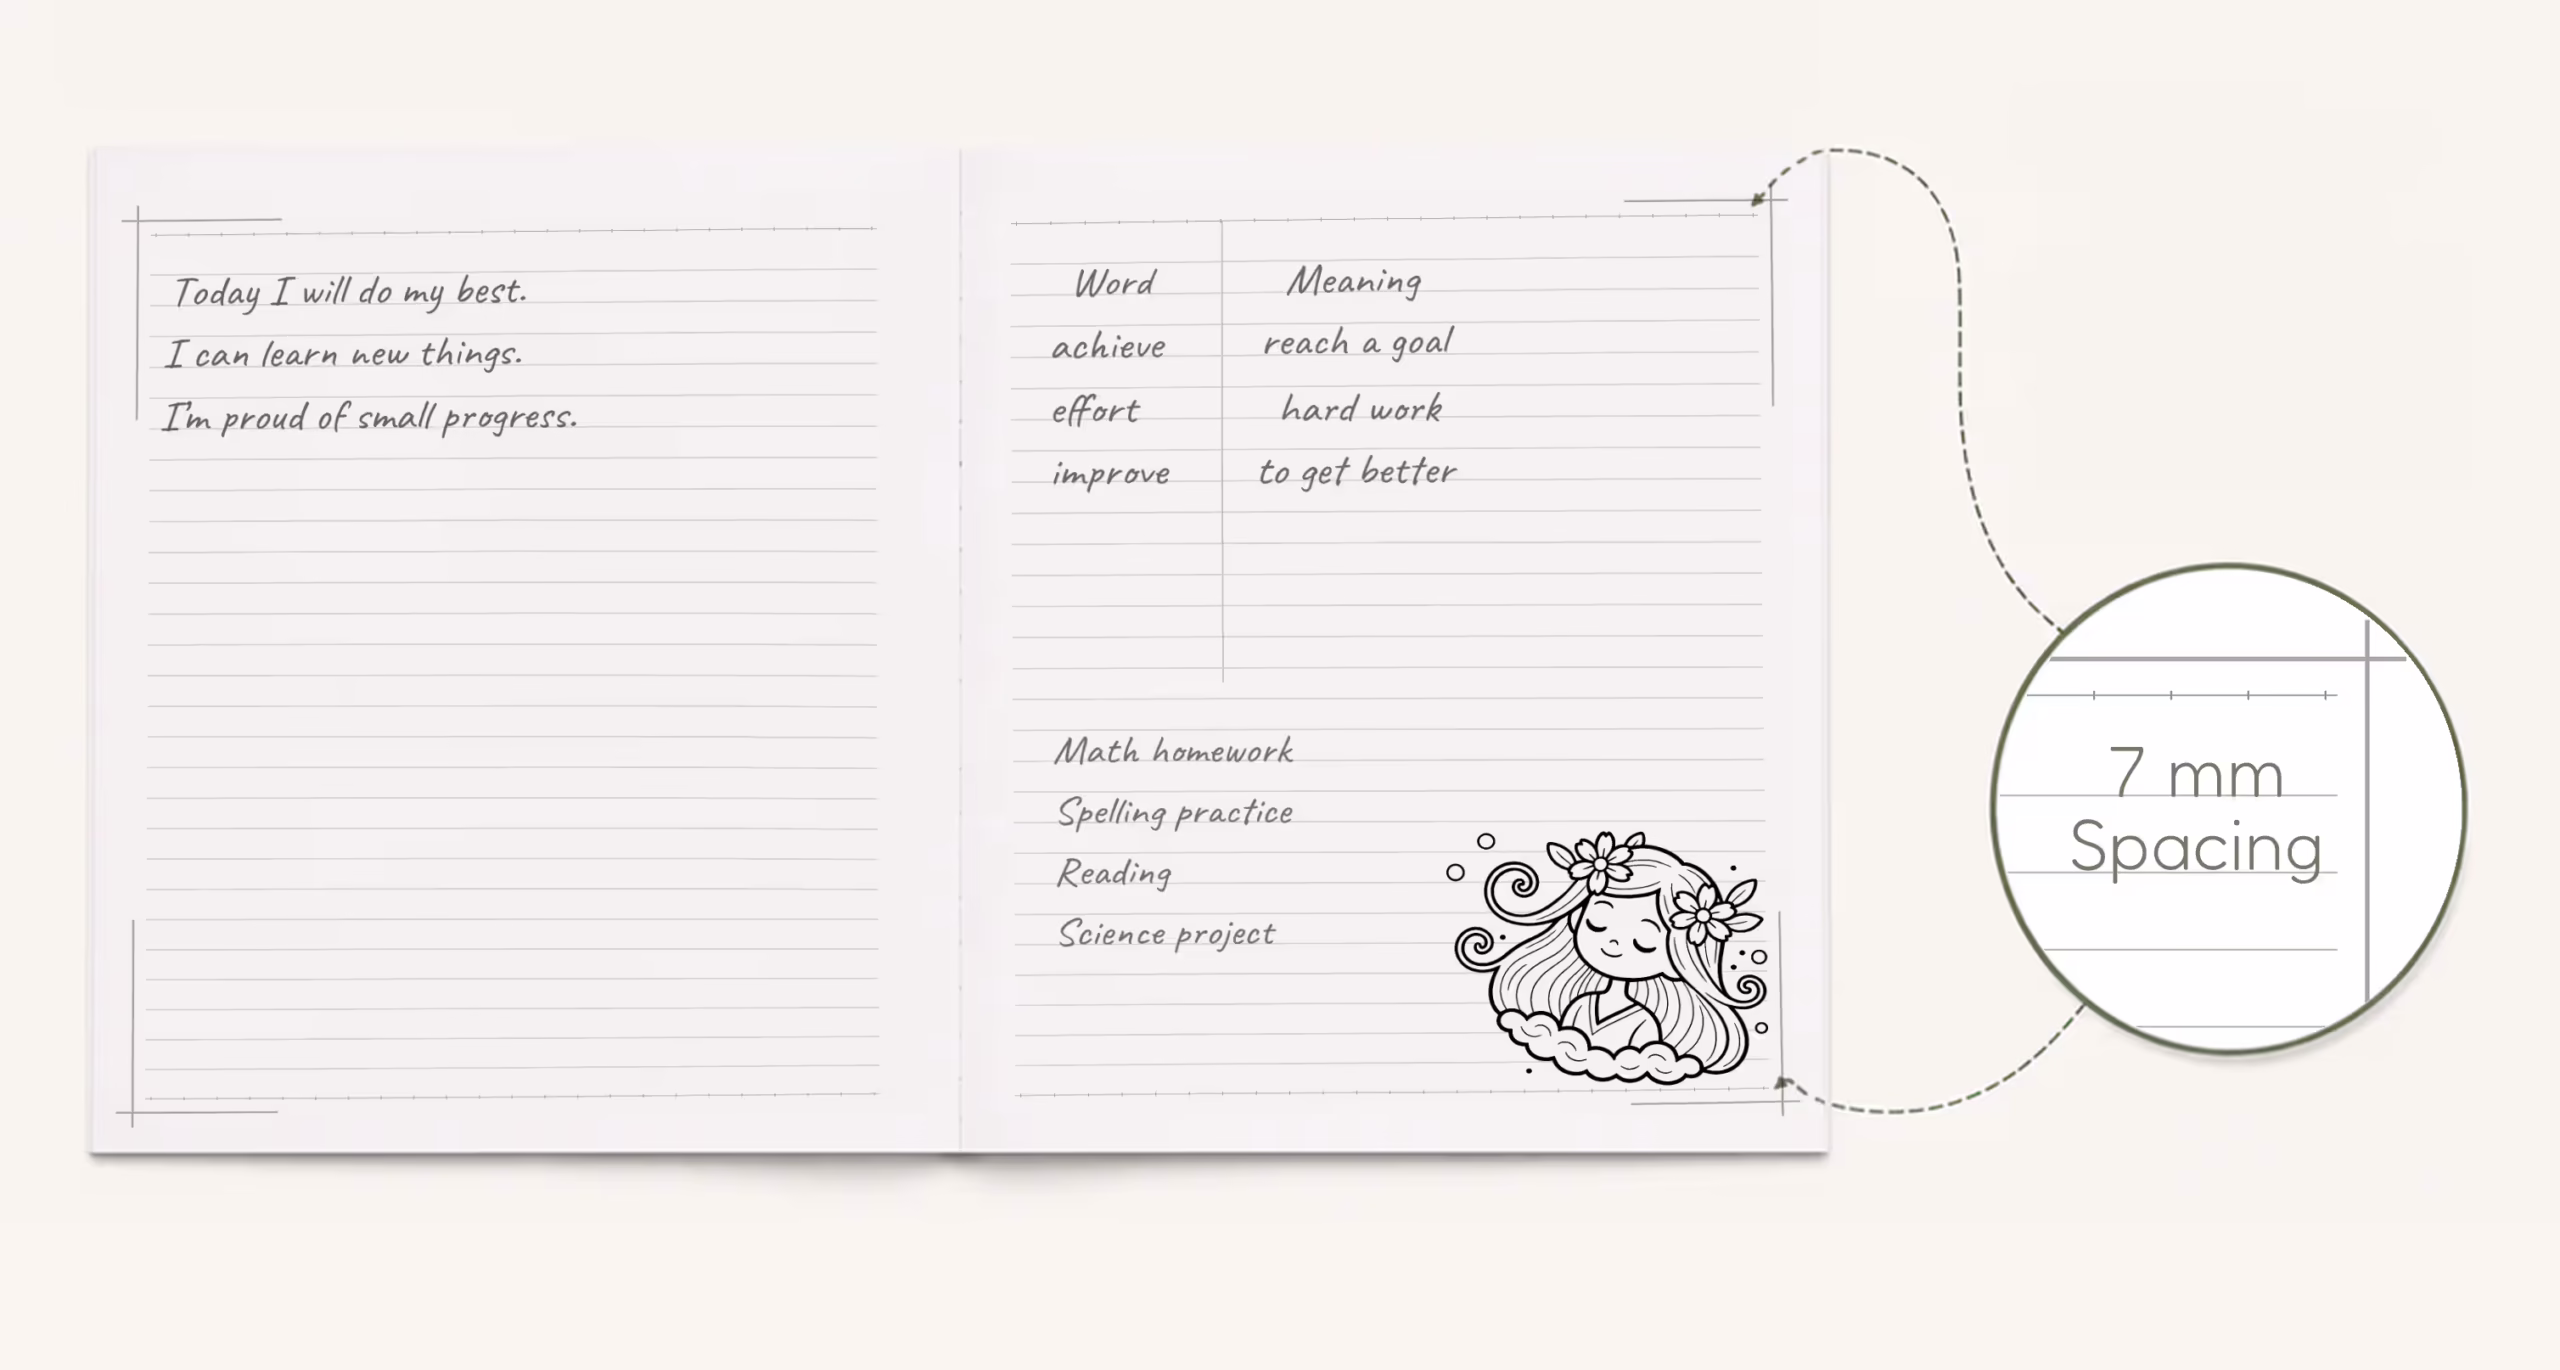 Today I will do my best.
I can learn new things.
I'm proud of small progress.
Word Meaning
achieve reach a goal
effort hard work
improve to get better
Math homework
Spelling practice
Reading
Science project
7 mm
Spacing